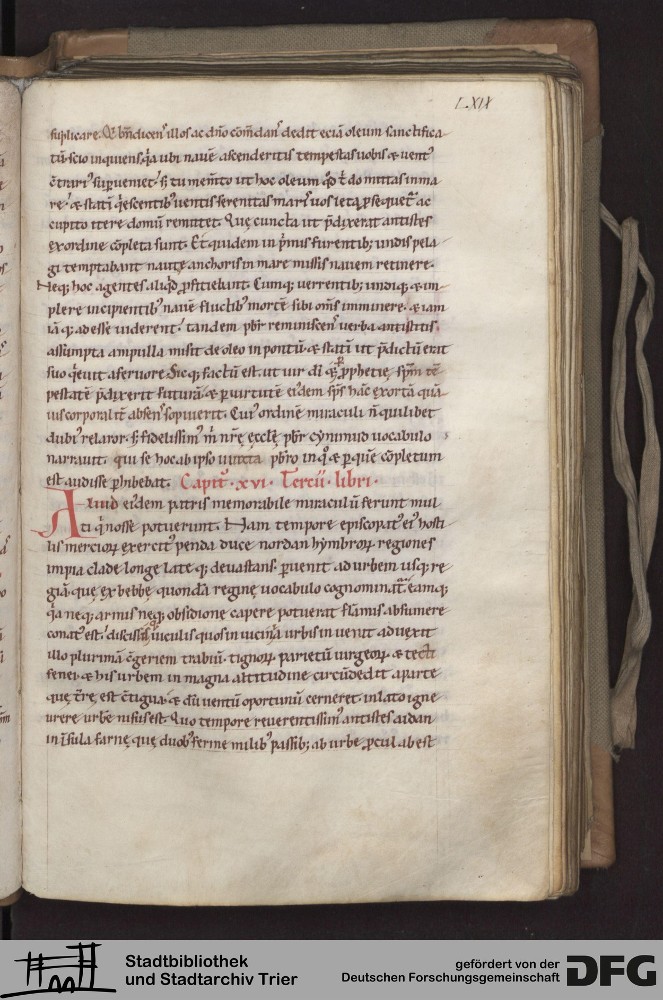 LXIX
suplicare. Et bn̄dicens illos ac dn̄o com̄dans dedit eciā oleum sanctifica
tū. scio inquiens q̇a ubi nauē ascenderitis tempestas uobis & uentꝰ
c̄trariꝰ supueniet. s; tu mem̄to ut hoc oleum qđ t̄ do mittas in ma
re. & statī q̇escentibꝰ uentis serenitas maris uos leta ꝓsequetᷣ ac
cupito itere domū remittet. Que cuncta ut p̄dixerat antistes
ex ordine c̄pleta sunt. Et quidem in p̍mis furentib; undis pela
gi temptabant nautę anchoris in mare missis nauem retinere.
Neq; hoc agentes aliq̇d ꝓfitiebant. Cumq; uerrentib; undiq; & im
plere incipientibꝰ nauē fluctibꝰ mortē sibi om̄s imminere. & iam
iāq; adesse uiderent. tandem pbr̄ reminiscens uerba antistitis.
assumpta ampulla misit de oleo in pontū. & statī ut p̄dictū erat
suo q̇euit a feruore. Sicq; factū est. ut uir di̅ & ꝑ ꝓphetię spm̄ tē
pestatē p̄dixerit futurā. & ꝑ uirtutē eiꝰdem sp̄s hāc exortā quā
uis corporalit̄ absens sopiuerit. Cuiꝰ ordinē miraculi n̄ quilibet
dubiꝰ relator. s; fidelissimꝰ m̍ nr̄ę ęcclę pbr̄ cynimud uocabulo
narrauit. qui se hoc ab ipso iuxta pbr̄o in quo & ꝑ quē cōpletum
est audisse ꝑhibebat. Capitꝉ. xvi. Tercii. libri.
Aliud eiꝰdem patris memorabile miraculū ferunt mul
ti q̍ nosse potuerunt. Nam tempore episcopatꝰ eiꝰ hosti
lis merciorꝝ exercitꝰ penda duce nordan hymbrorꝝ regiones
impia clade longe lateq; deuastans. ꝑuenit ad urbem usq; re
giā. quę ex bebbę quondā regine uocabulo cognominatᷣ. eamq;
q̇a neq; armis neq; obsidione capere potuerat flāmis absumere
conatꝰ est. discissisq; uiculis quos in uicinia urbis inuenit aduexit
illo plurimā c̄geriem trabiū. tignorꝝ. parietū uirgeorꝝ. & tecti
fenei. & his urbem in magna altitudine circūdedit a parte
quę t̄re est c̄tigua. & dū uentū oportunū cerneret. inlato igne
urere urbē nisus est. Quo tempore reuerentissimꝰ antistes aidan
in īsula farne. quę duobꝰ ferme milibꝰ passib; ab urbe ꝓcul abest
Stadtbibliothek
und Stadtarchiv Trier
gefördert von der
Deutschen Forschungsgemeinschaft
DFG